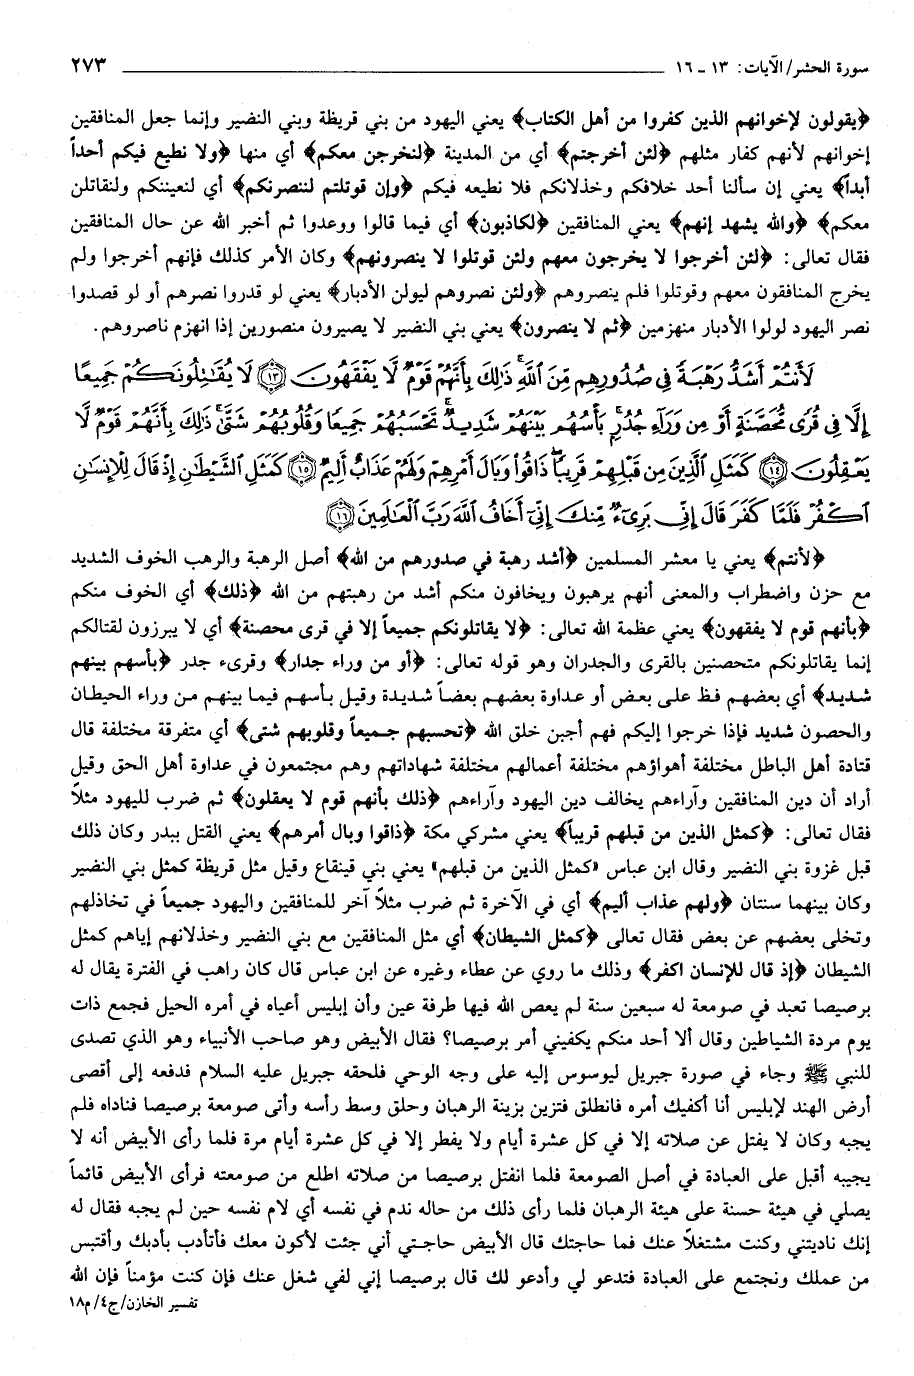 سورة الحشر/الآيات: ١٣ - ١٦ ٢٧٣
﴿يقولون لإخوانهم الذين كفروا من أهل الكتاب﴾ يعني اليهود من بني قريظة وبني النضير وإنما جعل المنافقين
إخوانهم لأنهم كفار مثلهم ﴿لئن أخرجتم﴾ أي من المدينة ﴿لنخرجن معكم﴾ أي منها ﴿ولا نطيع فيكم أحداً
أبداً﴾ يعني إن سألنا أحد خلافكم وخذلانكم فلا نطيعه فيكم ﴿وإن قوتلتم لننصرنكم﴾ أي لنعيننكم ولنقاتلن
معكم﴾ ﴿والله يشهد إنهم﴾ يعني المنافقين ﴿لكاذبون﴾ أي فيما قالوا ووعدوا ثم أخبر الله عن حال المنافقين
فقال تعالى: ﴿لئن أخرجوا لا يخرجون معهم ولئن قوتلوا لا ينصرونهم﴾ وكان الأمر كذلك فإنهم أخرجوا ولم
يخرج المنافقون معهم وقوتلوا فلم ينصروهم ﴿ولئن نصروهم ليولن الأدبار﴾ يعني لو قدروا نصرهم أو لو قصدوا
نصر اليهود لولوا الأدبار منهزمين ﴿ثم لا ينصرون﴾ يعني بني النضير لا يصيرون منصورين إذا انهزم ناصروهم.
لَأَنتُمْ أَشَدُّ رَهْبَةً فِي صُدُورِهِم مِّنَ ٱللَّهِ ذَٰلِكَ بِأَنَّهُمْ قَوْمٌ لَّا يَفْقَهُونَ ﴿١٣﴾ لَا يُقَٰتِلُونَكُمْ جَمِيعًا
إِلَّا فِي قُرًى مُّحَصَّنَةٍ أَوْ مِن وَرَآءِ جُدُرٍۭ بَأْسُهُم بَيْنَهُمْ شَدِيدٌ تَحْسَبُهُمْ جَمِيعًا وَقُلُوبُهُمْ شَتَّىٰ ذَٰلِكَ بِأَنَّهُمْ قَوْمٌ لَّا
يَعْقِلُونَ ﴿١٤﴾ كَمَثَلِ ٱلَّذِينَ مِن قَبْلِهِمْ قَرِيبًا ذَاقُوا۟ وَبَالَ أَمْرِهِمْ وَلَهُمْ عَذَابٌ أَلِيمٌ ﴿١٥﴾ كَمَثَلِ ٱلشَّيْطَٰنِ إِذْ قَالَ لِلْإِنسَٰنِ
ٱكْفُرْ فَلَمَّا كَفَرَ قَالَ إِنِّي بَرِيٓءٌ مِّنكَ إِنِّيٓ أَخَافُ ٱللَّهَ رَبَّ ٱلْعَٰلَمِينَ ﴿١٦﴾
﴿لأنتم﴾ يعني يا معشر المسلمين ﴿أشد رهبة في صدورهم من الله﴾ أصل الرهبة والرهب الخوف الشديد
مع حزن واضطراب والمعنى أنهم يرهبون ويخافون منكم أشد من رهبتهم من الله ﴿ذلك﴾ أي الخوف منكم
﴿بأنهم قوم لا يفقهون﴾ يعني عظمة الله تعالى: ﴿لا يقاتلونكم جميعاً إلا في قرى محصنة﴾ أي لا يبرزون لقتالكم
إنما يقاتلونكم متحصنين بالقرى والجدران وهو قوله تعالى: ﴿أو من وراء جدار﴾ وقرىء جدر ﴿بأسهم بينهم
شديد﴾ أي بعضهم فظ على بعض أو عداوة بعضهم بعضاً شديدة وقيل بأسهم فيما بينهم من وراء الحيطان
والحصون شديد فإذا خرجوا إليكم فهم أجبن خلق الله ﴿تحسبهم جميعاً وقلوبهم شتى﴾ أي متفرقة مختلفة قال
قتادة أهل الباطل مختلفة أهواؤهم مختلفة أعمالهم مختلفة شهاداتهم وهم مجتمعون في عداوة أهل الحق وقيل
أراد أن دين المنافقين وآراءهم يخالف دين اليهود وآراءهم ﴿ذلك بأنهم قوم لا يعقلون﴾ ثم ضرب لليهود مثلاً
فقال تعالى: ﴿كمثل الذين من قبلهم قريباً﴾ يعني مشركي مكة ﴿ذاقوا وبال أمرهم﴾ يعني القتل ببدر وكان ذلك
قبل غزوة بني النضير وقال ابن عباس «كمثل الذين من قبلهم» يعني بني قينقاع وقيل مثل قريظة كمثل بني النضير
وكان بينهما سنتان ﴿ولهم عذاب أليم﴾ أي في الآخرة ثم ضرب مثلاً آخر للمنافقين واليهود جميعاً في تخاذلهم
وتخلى بعضهم عن بعض فقال تعالى ﴿كمثل الشيطان﴾ أي مثل المنافقين مع بني النضير وخذلانهم إياهم كمثل
الشيطان ﴿إذ قال للإنسان اكفر﴾ وذلك ما روي عن عطاء وغيره عن ابن عباس قال كان راهب في الفترة يقال له
برصيصا تعبد في صومعة له سبعين سنة لم يعص الله فيها طرفة عين وأن إبليس أعياه في أمره الحيل فجمع ذات
يوم مردة الشياطين وقال ألا أحد منكم يكفيني أمر برصيصا؟ فقال الأبيض وهو صاحب الأنبياء وهو الذي تصدى
للنبي ﷺ وجاء في صورة جبريل ليوسوس إليه على وجه الوحي فلحقه جبريل عليه السلام فدفعه إلى أقصى
أرض الهند لإبليس أنا أكفيك أمره فانطلق فتزين بزينة الرهبان وحلق وسط رأسه وأتى صومعة برصيصا فناداه فلم
يجبه وكان لا يفتل عن صلاته إلا في كل عشرة أيام ولا يفطر إلا في كل عشرة أيام مرة فلما رأى الأبيض أنه لا
يجيبه أقبل على العبادة في أصل الصومعة فلما انفتل برصيصا من صلاته اطلع من صومعته فرأى الأبيض قائماً
يصلي في هيئة حسنة على هيئة الرهبان فلما رأى ذلك من حاله ندم في نفسه أي لام نفسه حين لم يجبه فقال له
إنك ناديتني وكنت مشتغلاً عنك فما حاجتك قال الأبيض حاجتي أني جئت لأكون معك فأتأدب بأدبك وأقتبس
من عملك ونجتمع على العبادة فتدعو لي وأدعو لك قال برصيصا إني لفي شغل عنك فإن كنت مؤمناً فإن الله
تفسير الخازن/ج٤/م١٨